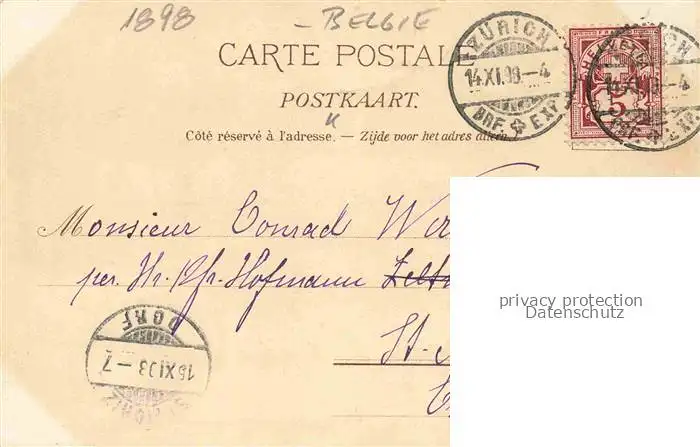 1898 - BELGIE
CARTE POSTALE
POSTKAART.
Côté réservé à l'adresse. — Zijde voor het adres alleen.
ZÜRICH
14.XI.98.-4
BRF. EXP.
HELVETIA
5
14.XI.98.-4
Monsieur Conrad
per. Hr. Pfr. Hofmann
St.
privacy protection
Datenschutz
DORF
15.XI.98-7